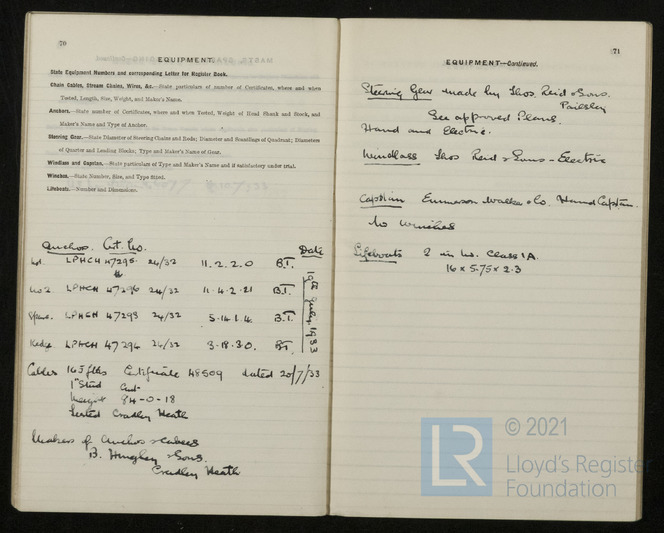 70
EQUIPMENT.
State Equipment Numbers and corresponding Letter for Register Book.
Chain Cables, Stream Chains, Wires, &c.—State particulars of number of Certificates, where and when
Tested, Length, Size, Weight, and Maker's Name.
Anchors.—State number of Certificates, where and when Tested, Weight of Head Shank and Stock, and
Maker's Name and Type of Anchor.
Steering Gear.—State Diameter of Steering Chains and Rods; Diameter and Scantlings of Quadrant; Diameters
of Quarter and Leading Blocks; Type and Maker's Name of Gear.
Windlass and Capstan.—State particulars of Type and Maker's Name and if satisfactory under trial.
Winches.—State Number, Size, and Type fitted.
Lifeboats.—Number and Dimensions.
Anchors. Cert. No. Date
LPHCH 47295 24/32 11.2.2.0 B.T.
No 2 LPHCH 47296 24/32 11.4.2.21 B.T.
Spare. LPHCH 47293 24/32 5.14.1.4. B.T.
Kedge LPHCH 47294 24/32 3.18.3.0. B.T.
19th July 1933
Cables 165 fths Certificate 48509 dated 20/7/33
1" Stud
Weight 84-0-18
Tested Cradley Heath
Makers of Anchors & Cables
B. Hingley & Sons.
Cradley Heath
71
EQUIPMENT—Continued.
Steering Gear made by Thos Reid & Sons.
Paisley
See approved Plans.
Hand and Electric.
Windlass Thos Reid & Sons - Electric
Capstan Emmerson Walker & Co. Hand Capstan.
No Winches
Lifeboats 2 in No. Class 1A.
16 x 5.75 x 2.3
LR
© 2021
Lloyd's Register
Foundation